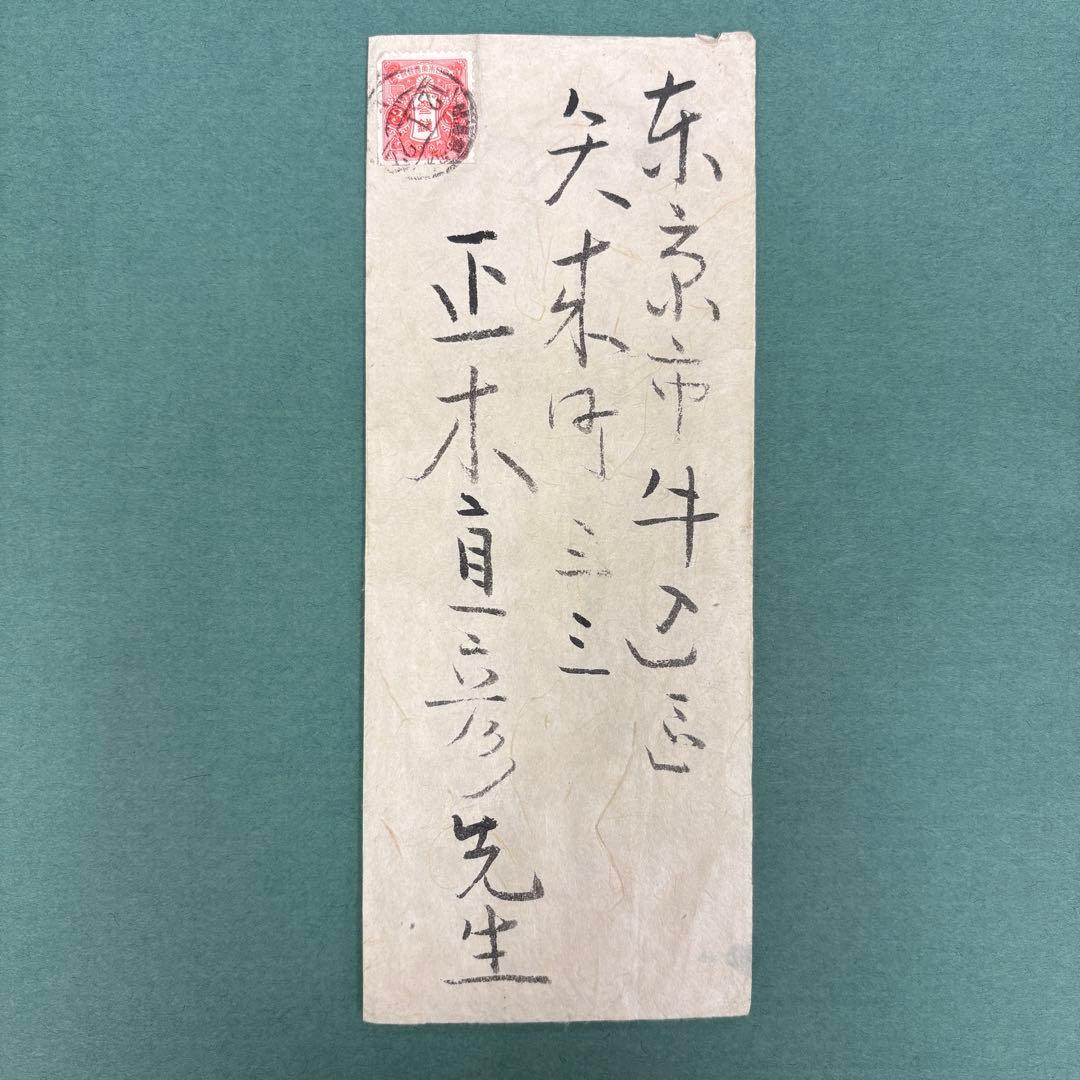 东京市牛込区
矢来町三三
正木直彦先生